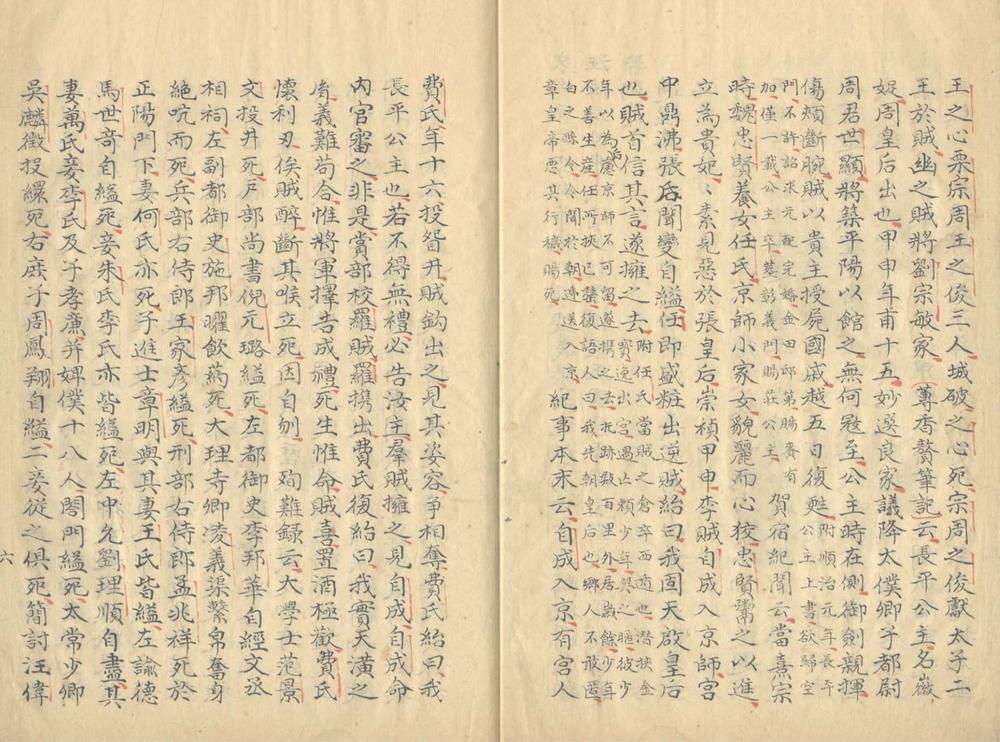 王之心衆宗周王之俊三人城破之心死宗周之俊獻太子二
王於賊幽之賊將劉宗敏家蓴香贅筆記云長平公主名徽
娖周皇后出也甲申年甫十五妙選良家議降太僕卿子都尉
周君世顯將築平陽以館之無何冦至公主時在側御劍親揮
傷頰斷腕賊以貴主授屍國戚越五日復甦附順治元年長平公主上書欲歸空
門不許詔求元配完婚金田邸第賜賚有加僅一載公主卒塟彰義門賜莊公主賀宿紀聞云當熹宗
時魏忠賢養女任氏京師小家女貌麗而心狡忠賢鬻之以進
立為貴妃〻素見惡於張皇后崇禎甲申李賊自成入京師宮
中鼎沸張后聞變自縊任即盛粧出逆賊紿曰我固天啟皇后
也賊首信其言遂擁之去附任氏當賊之倉卒西遁也潛挾金寶逸出宮遇亡賴少年與之暱彼少
年以為后慮京師不可留遂携之去托跡數百里外居歲餘少年不善生產任所挾已罄復語人曰我先朝皇后也鄉人不敢匿
白之縣令令聞於朝逓送入京章皇帝惡其行穢賜死紀事本末云自成入京有宮人
費氏年十六投眢井賊鈎出之見其姿容爭相奪費氏紿曰我
長平公主也若不得無禮必告汝主羣賊擁之見自成自成命
內官審之非是賞部校羅賊羅携出費氏復紿曰我實天潢之
胤義難苟合惟將軍擇吉成禮死生惟命賊喜置酒極歡費氏
懷利刃俟賊醉斷其喉立死因自刎 殉難錄云大學士范景
文投井死戶部尚書倪元璐縊死左都御史李邦華自經文丞
相祠左副都御史施邦曜飲藥死大理寺卿凌義渠繫帛奮身
絕吭而死兵部右侍郎王家彥縊死刑部右侍郎孟兆祥死於
正陽門下妻何氏亦死子進士章明與其妻王氏皆縊左諭德
馬世奇自縊死妾朱氏李氏亦皆縊死左中允劉理順自盡其
妻萬氏妾李氏及子孝廉并婢僕十八人闔門縊死太常少卿
吳麟徵投繯死右庶子周鳳翔自縊二妾從之俱死簡討汪偉
六